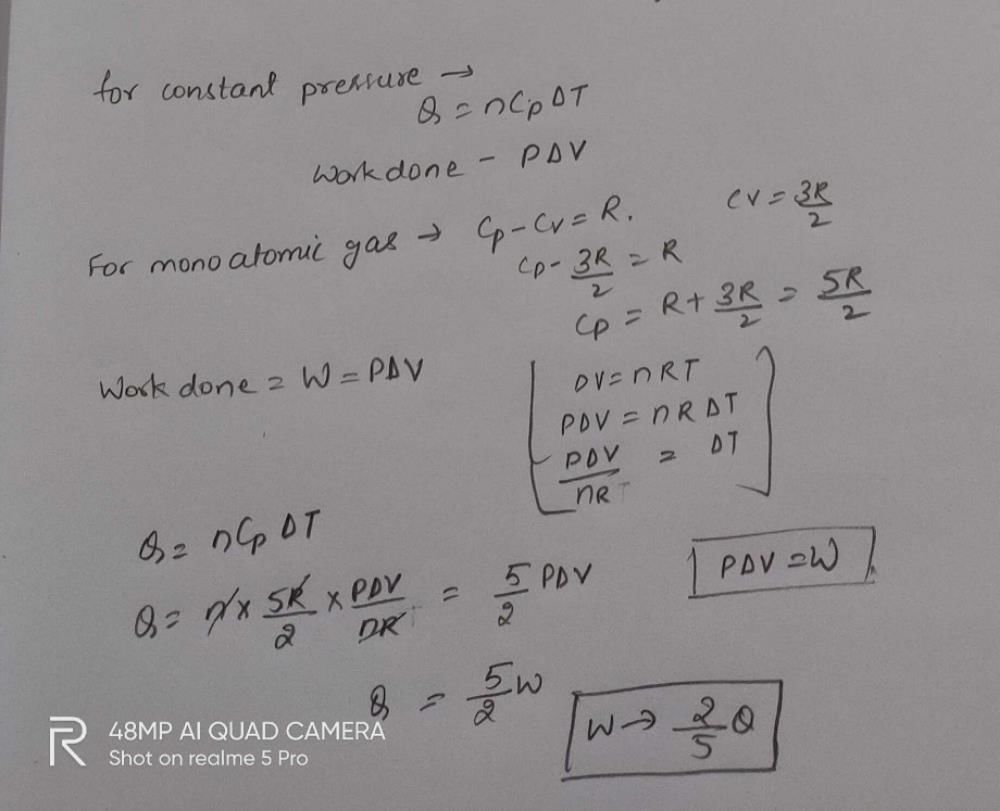 for constant pressure →
Q = nCpΔT
Workdone - PΔV
For monoatomic gas → Cp-Cv=R. Cv = 3R/2
Cp - 3R/2 = R
Cp = R + 3R/2 = 5R/2
Workdone = W = PΔV
PV = nRT
PΔV = nRΔT
PΔV/nR = ΔT
Q = nCpΔT
Q = n x 5R/2 x PΔV/nR = 5/2 PΔV
PΔV = W
Q = 5/2 W
W → 2/5 Q
R 48MP AI QUAD CAMERA
Shot on realme 5 Pro